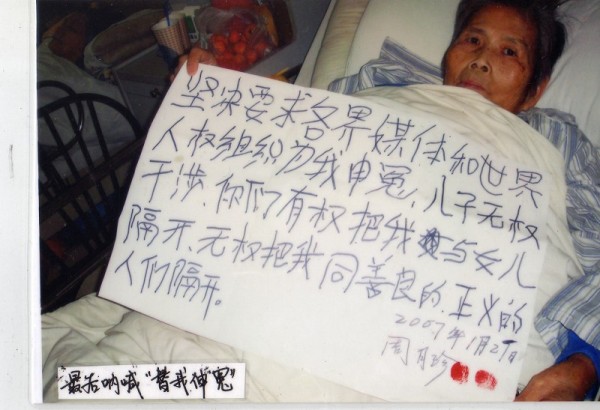 坚决要求各界媒体和世界
人权组织为我申冤、儿子无权
干涉、你们有权把我与女儿
隔开、无权把我同善良的、正义的
人们隔开。
2007年1月21日
周月珍
最后呐喊"替我伸冤"